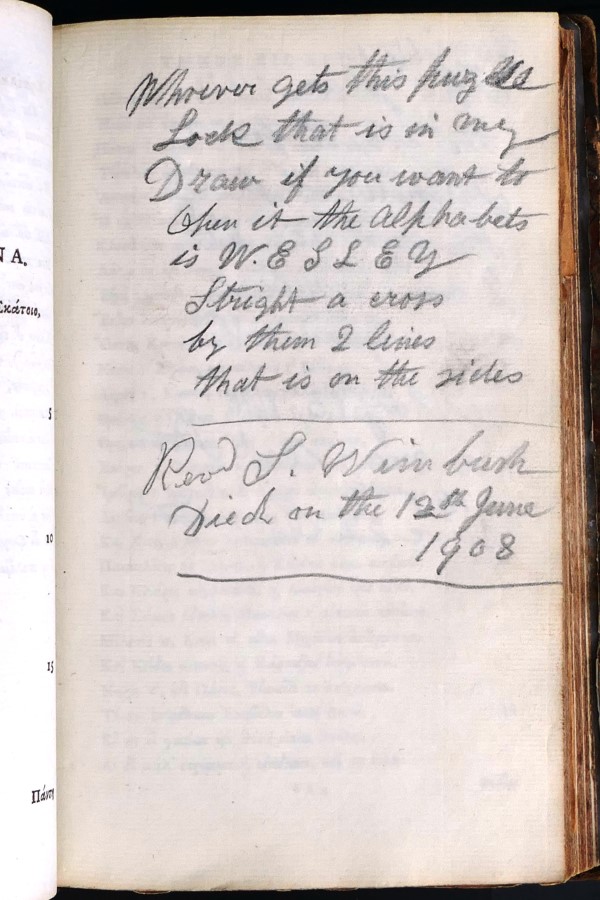 Whoever gets this puzzle
Lock that is in my
Draw if you want to
Open it the alphabets
is W. E S L E Y
Stright a cross
by them 2 lines
that is on the sides
Revd S. Wimbush
Died on the 12th June
1908
Ν Α.
5
10
15